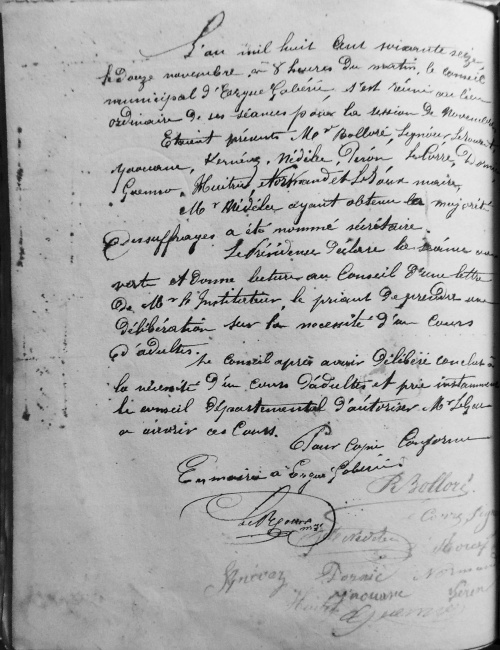 L'an mil huit Cent soixante seize
le Douze novembre à 8 heures du matin, le conseil
municipal d'Ergué Gabéric s'est réuni au lieu
ordinaire de ses séances pour la session de Novembre
Etaient présents Mrs Bolloré, Signour, Lerouart
Yaouanc, Kernévez, Nédélec, Péron, Le Corre,
Guenno, Huitric, Normand et Le maire,
Mr Nédélec ayant obtenu la majorité
Des suffrages a été nommé secrétaire.
Le Présidence Déclare la séance ou
verte et donne lecture au Conseil d'une lettre
De Mr l'Instituteur, le priant de prendre une
délibération sur la nécessité d'un Cours
D'adultes.
Le Conseil après avoir Délibéré conclut à
la nécessité d'un cours d'adultes et prie instamment
le conseil Départemental d'autoriser Mr
a ouvrir ces Cours.
Pour copie Conforme
En mairie à Ergué Gabéric
R Bolloré
Nédélec
Normand
Yaouanc
Huitric Guenno